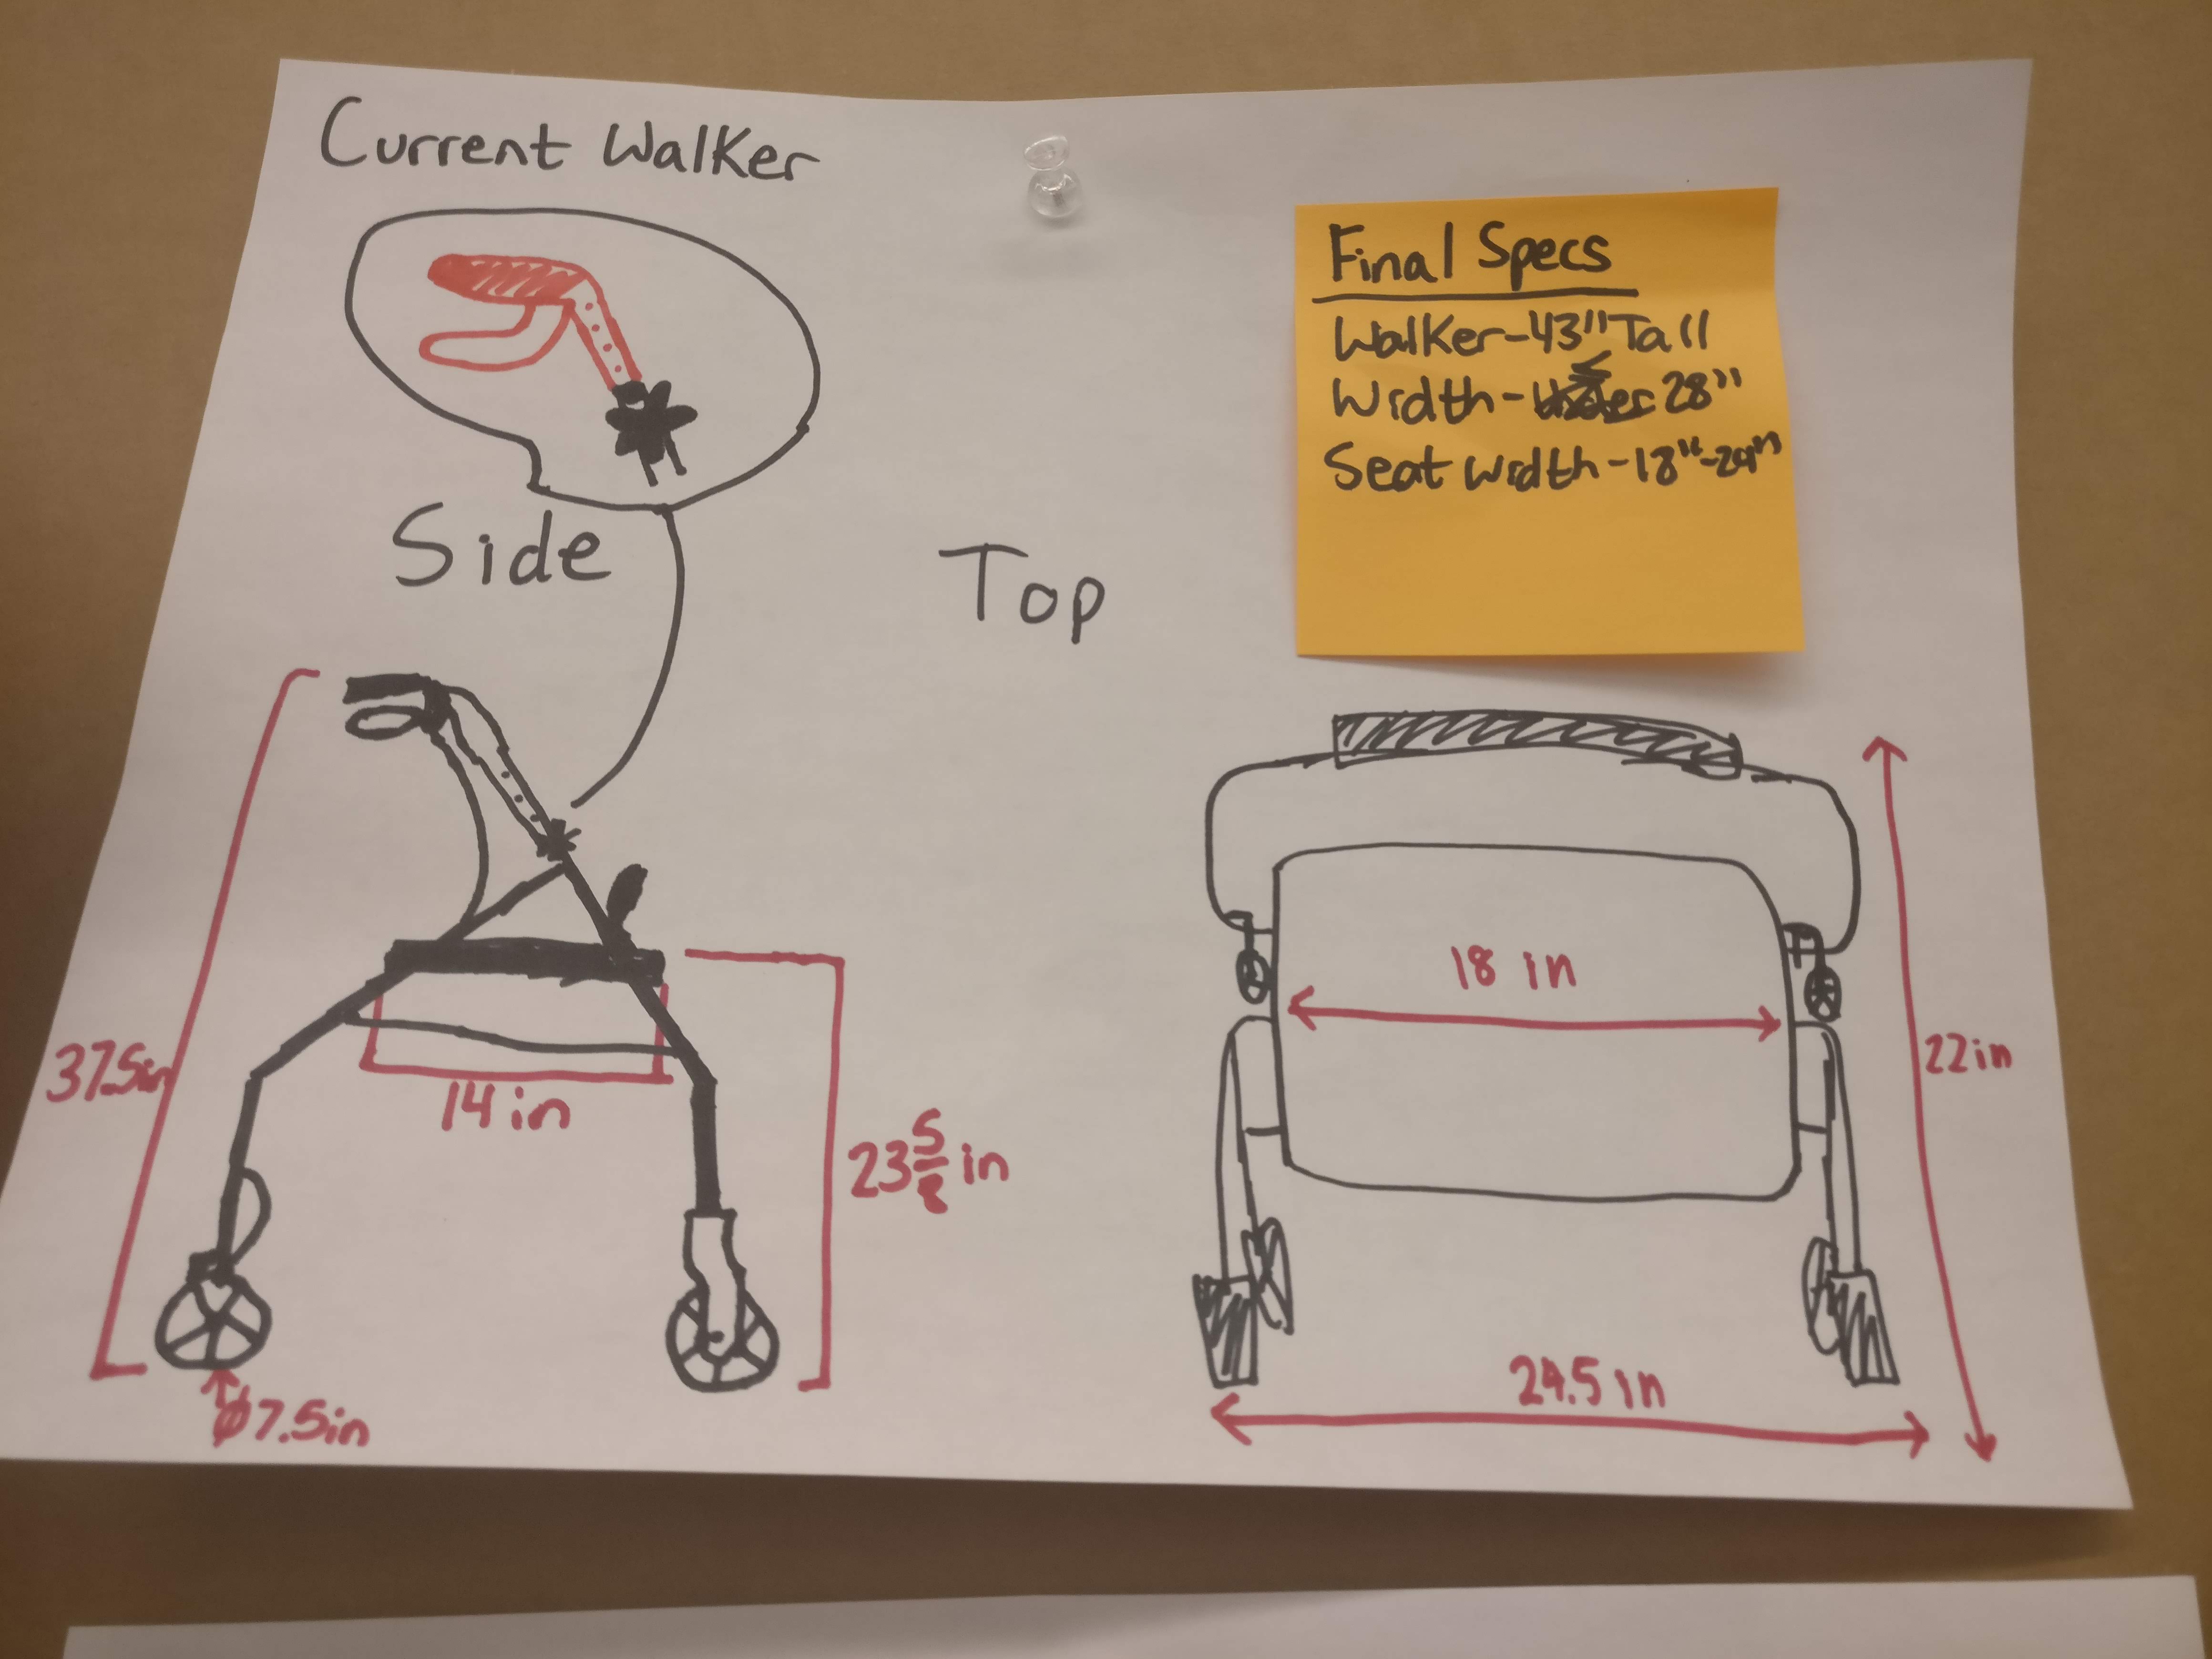 Current Walker
Final Specs
Walker-43" Tall
Width-≤ 28"
Seat Width-18"-24"
Side
Top
37.5in
14 in
23 5/8 in
Ø7.5in
18 in
22in
24.5 in